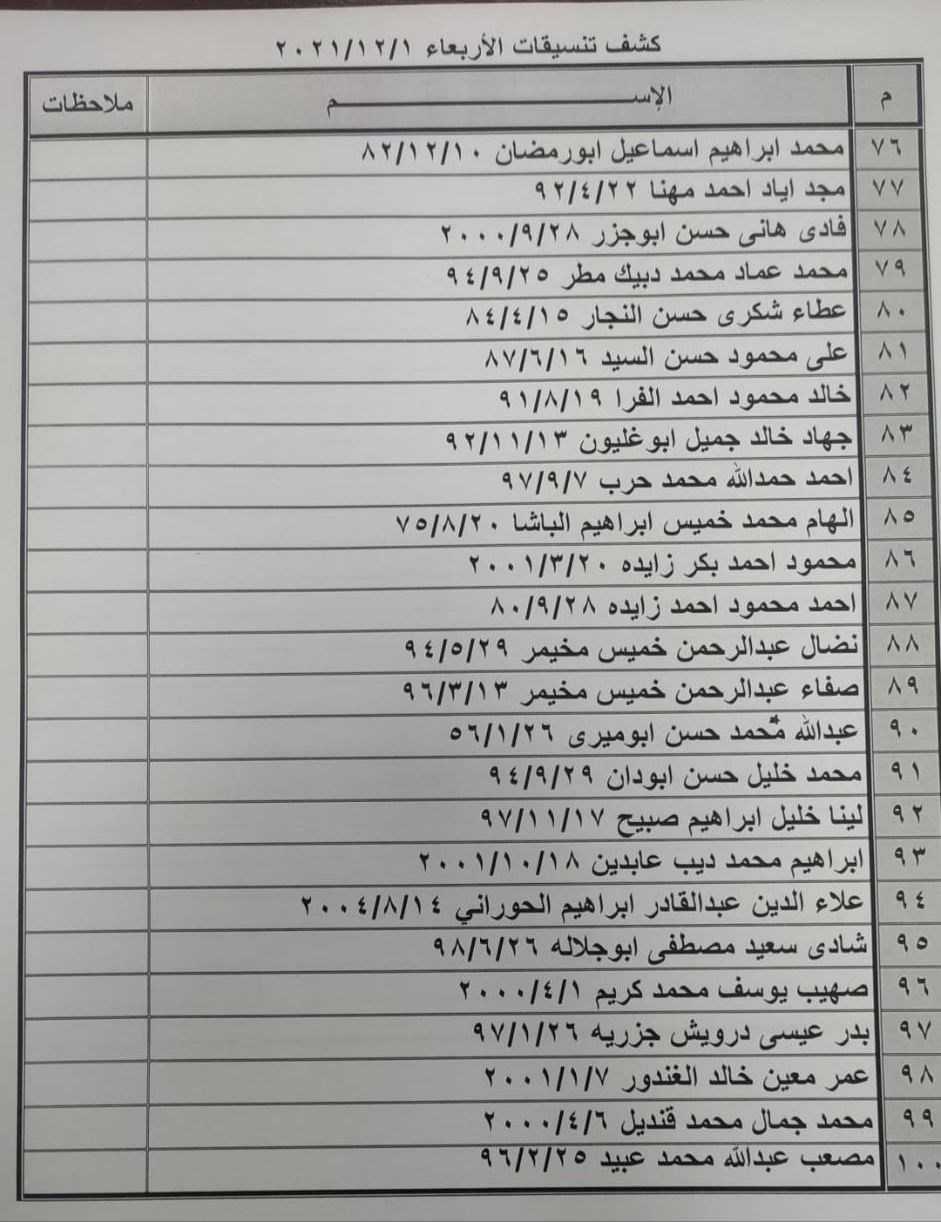 كشف تنسيقات الأربعاء ٢٠٢١/١٢/١
م الإســـــــــــم ملاحظات
٧٦ محمد ابراهيم اسماعيل ابورمضان ٨٢/١٢/١٠
٧٧ مجد اياد احمد مهنا ٩٢/٤/٢٢
٧٨ فادى هانى حسن ابوجزر ٢٠٠٠/٩/٢٨
٧٩ محمد عماد محمد دبيك مطر ٩٤/٩/٢٥
٨٠ عطاء شكرى حسن النجار ٨٤/٤/١٥
٨١ على محمود حسن السيد ٨٧/٦/١٦
٨٢ خالد محمود احمد الفرا ٩١/٨/١٩
٨٣ جهاد خالد جميل ابوغليون ٩٢/١١/١٣
٨٤ احمد حمدالله محمد حرب ٩٧/٩/٧
٨٥ الهام محمد خميس ابراهيم الباشا ٧٥/٨/٢٠
٨٦ محمود احمد بكر زايده ٢٠٠١/٣/٢٠
٨٧ احمد محمود احمد زايده ٨٠/٩/٢٨
٨٨ نضال عبدالرحمن خميس مخيمر ٩٤/٥/٢٩
٨٩ صفاء عبدالرحمن خميس مخيمر ٩٦/٣/١٣
٩٠ عبدالله محمد حسن ابوميرى ٥٦/١/٢٦
٩١ محمد خليل حسن ابودان ٩٤/٩/٢٩
٩٢ لينا خليل ابراهيم صبيح ٩٧/١١/١٧
٩٣ ابراهيم محمد ديب عابدين ٢٠٠١/١٠/١٨
٩٤ علاء الدين عبدالقادر ابراهيم الحوراني ٢٠٠٤/٨/١٤
٩٥ شادى سعيد مصطفى ابوجلاله ٩٨/٦/٢٦
٩٦ صهيب يوسف محمد كريم ٢٠٠٠/٤/١
٩٧ بدر عيسى درويش جزريه ٩٧/١/٢٦
٩٨ عمر معين خالد الغندور ٢٠٠١/١/٧
٩٩ محمد جمال محمد قنديل ٢٠٠٠/٤/٦
١٠٠ مصعب عبدالله محمد عبيد ٩٦/٢/٢٥